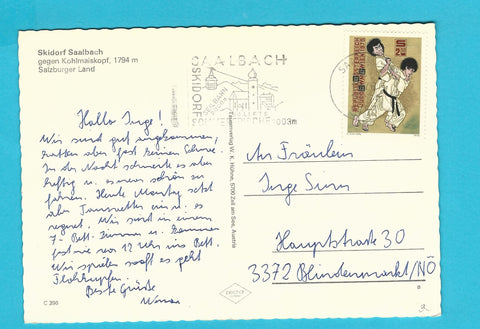 Skidorf Saalbach
gegen Kohlmaiskopf, 1794 m
Salzburger Land
Hallo Inge!
Wir sind gut angekommen,
hatten aber fast keinen Schnee.
In der Nacht schneite es aber
heftig u. es war schön zu
fahren. Heute Montag setzt
aber Tauwetter ein u. es
regnet. Wir sind in einem
7-Bett-Zimmer u. kommen
fast nie vor 12 Uhr ins Bett.
Wir spielen sooft es geht
Flohhupfen.
Beste Grüße
C 398
SAALBACH
SKIDORF
1003m
Tauernverlag W. K. Hühne, 5700 Zell am See, Austria
S 2
REPUBLIK ÖSTERREICH
An Fräulein
Inge
Hauptstraße 30
3372 Blindenmarkt/NÖ